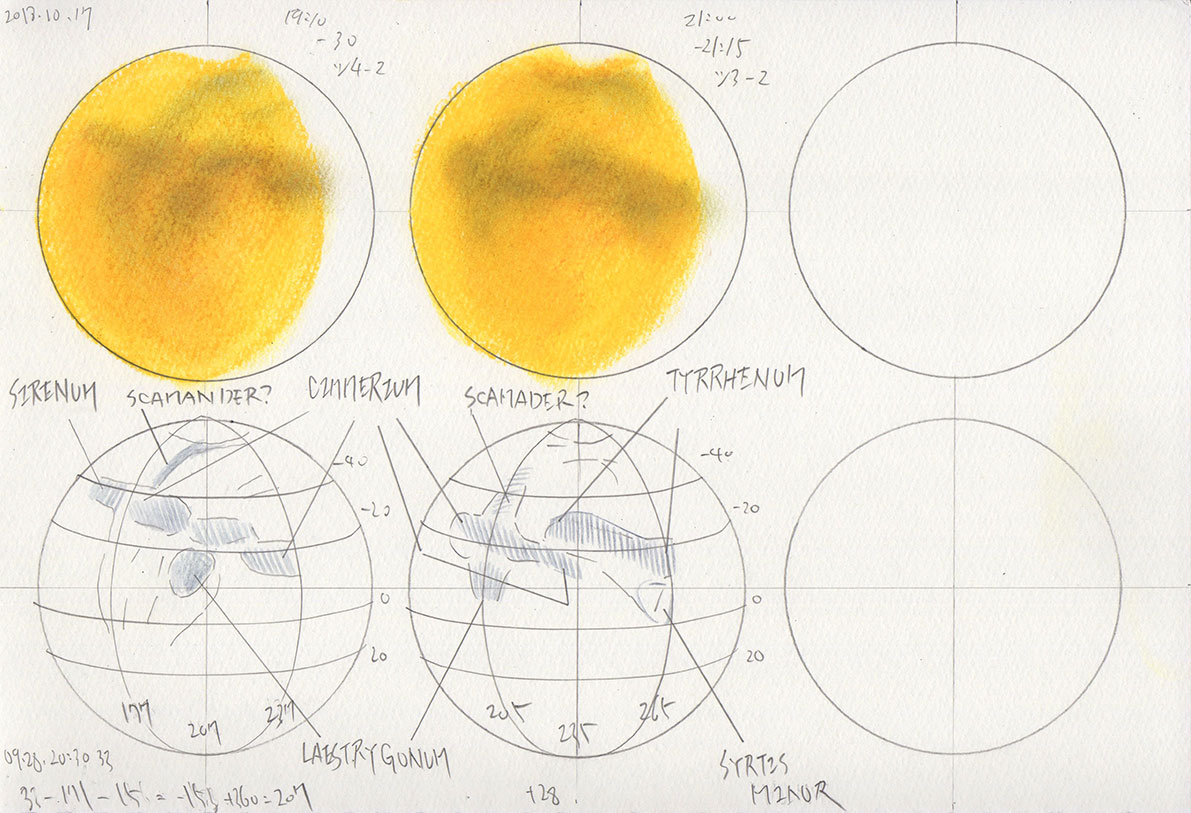 2018.10.17
19:10
-30
21:00
-21:15
SIRENUM
SCAMANDER?
CIMMERIUM
SCAMADER?
TYRRHENUM
-40
-20
0
20
-40
-20
0
20
177
207
237
205
235
265
LAESTRYGONUM
SYRTIS
MINOR
09.28. 20:30 33
33-171-15 = -153 +360=207
+28.